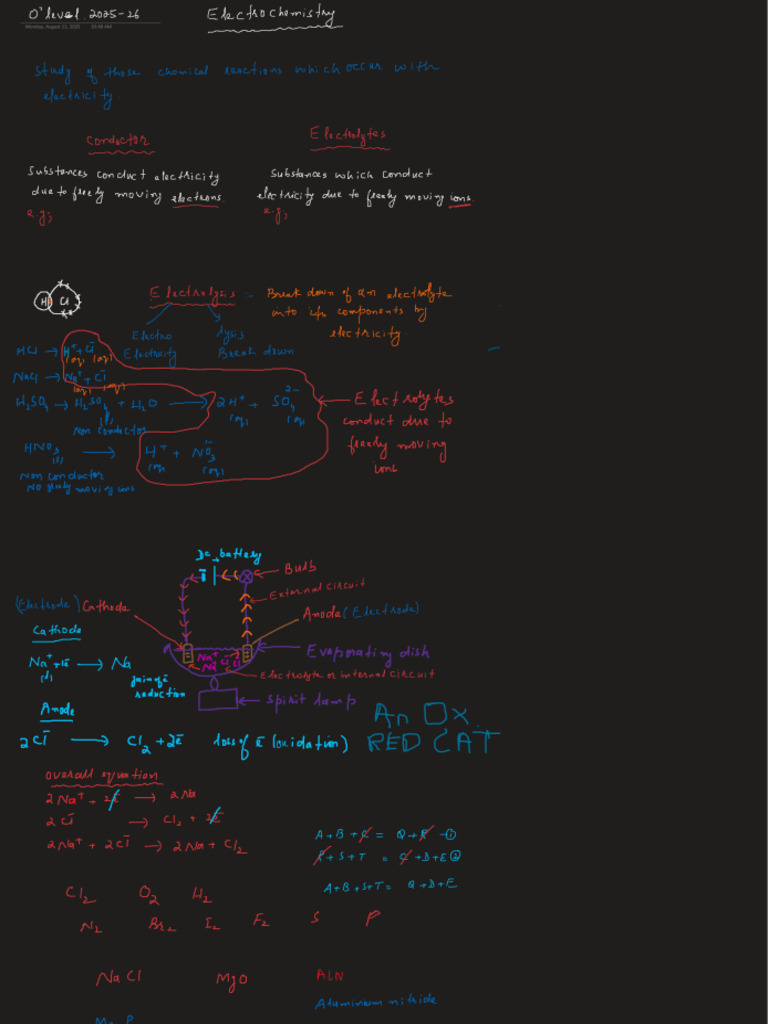 O' level. 2025-26
Electrochemistry
Monday, August 11, 2025
Study of those chemical reactions which occur with
electricity.
Conductor
Electrolytes
Substances conduct electricity
due to freely moving electrons.
e.g;
Substances which conduct
electricity due to freely moving ions.
e.g;
H Cl
Electrolysis :- Break down of an electrolyte
into its components by
electricity
Electro
Electricity
lysis
Break down
HCl → H⁺ + Cl⁻
(aq) (aq)
NaCl → Na⁺ + Cl⁻
(aq) (aq)
H₂SO₄ → H₂SO₄ + H₂O → 2H⁺ + SO₄²⁻
(l) (aq) (aq)
non conductor
HNO₃ → H⁺ + NO₃⁻
(l) (aq) (aq)
Non conductor
No freely moving ions
Electrolytes
conduct due to
freely moving
ions
Dc battery
ē
Bulb
External circuit
(Electrode) Cathode
Anode (Electrode)
Na⁺ Cl⁻
Evaporating dish
Electrolyte or internal circuit
Spirit lamp
Cathode
Na⁺ + 1ē → Na
(l)
gain of ē
reduction
Anode
2Cl⁻ → Cl₂ + 2ē loss of ē (oxidation)
An Ox.
RED CAT
overall equation
2Na⁺ + 2ē → 2Na
2Cl⁻ → Cl₂ + 2ē
2Na⁺ + 2Cl⁻ → 2Na + Cl₂
A+B+C = Q+R -①
R+S+T = C+D+E ②
A+B+S+T = Q+D+E
Cl₂ O₂ H₂
N₂ Br₂ I₂ F₂ S P
NaCl MgO ALN
Aluminium nitride